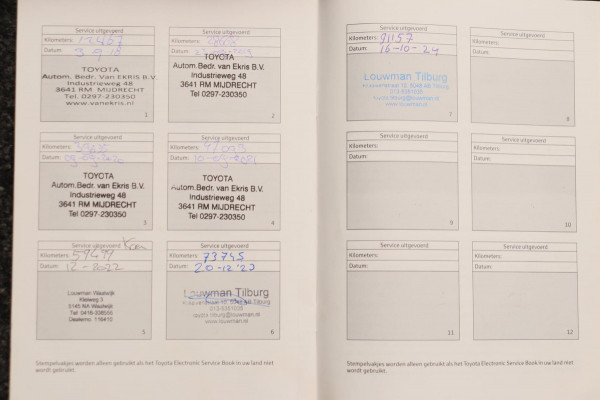 Service uitgevoerd
Kilometers:
Datum: 3-9-18
TOYOTA
Autom.Bedr. Van Ekris B.V.
Industrieweg 48
3641 RM MIJDRECHT
Tel. 0297-230350
www.vanekris.nl
1
Service uitgevoerd
Kilometers:
Datum:
TOYOTA
Autom.Bedr. van Ekris B.V.
Industrieweg 48
3641 RM MIJDRECHT
Tel 0297-230350
2
Service uitgevoerd
Kilometers:
Datum:
TOYOTA
Autom.Bedr. van Ekris B.V.
Industrieweg 48
3641 RM MIJDRECHT
Tel 0297-230350
3
Service uitgevoerd
Kilometers:
Datum:
TOYOTA
Autom.Bedr. van Ekris B.V.
Industrieweg 48
3641 RM MIJDRECHT
Tel 0297-230350
4
Service uitgevoerd
Kilometers:
Datum: 12-2022
Louwman Waalwijk
Kleiweg 3
5145 NA Waalwijk
Tel: 0416-338555
5
Service uitgevoerd
Kilometers: 73745
Datum: 20-12'23
Louwman Tilburg
013-5361035
toyota-tilburg@louwman.nl
www.louwman.nl
6
Stempelvakjes worden alleen gebruikt als het Toyota Electronic Service Book in uw land niet
wordt gebruikt.
Service uitgevoerd
Kilometers: 91157
Datum: 16-10-24
Louwman Tilburg
toyota-tilburg@louwman.nl
www.louwman.nl
7
Service uitgevoerd
Kilometers:
Datum:
8
Service uitgevoerd
Kilometers:
Datum:
9
Service uitgevoerd
Kilometers:
Datum:
10
Service uitgevoerd
Kilometers:
Datum:
11
Service uitgevoerd
Kilometers:
Datum:
12
Stempelvakjes worden alleen gebruikt als het Toyota Electronic Service Book in uw land niet
wordt gebruikt.